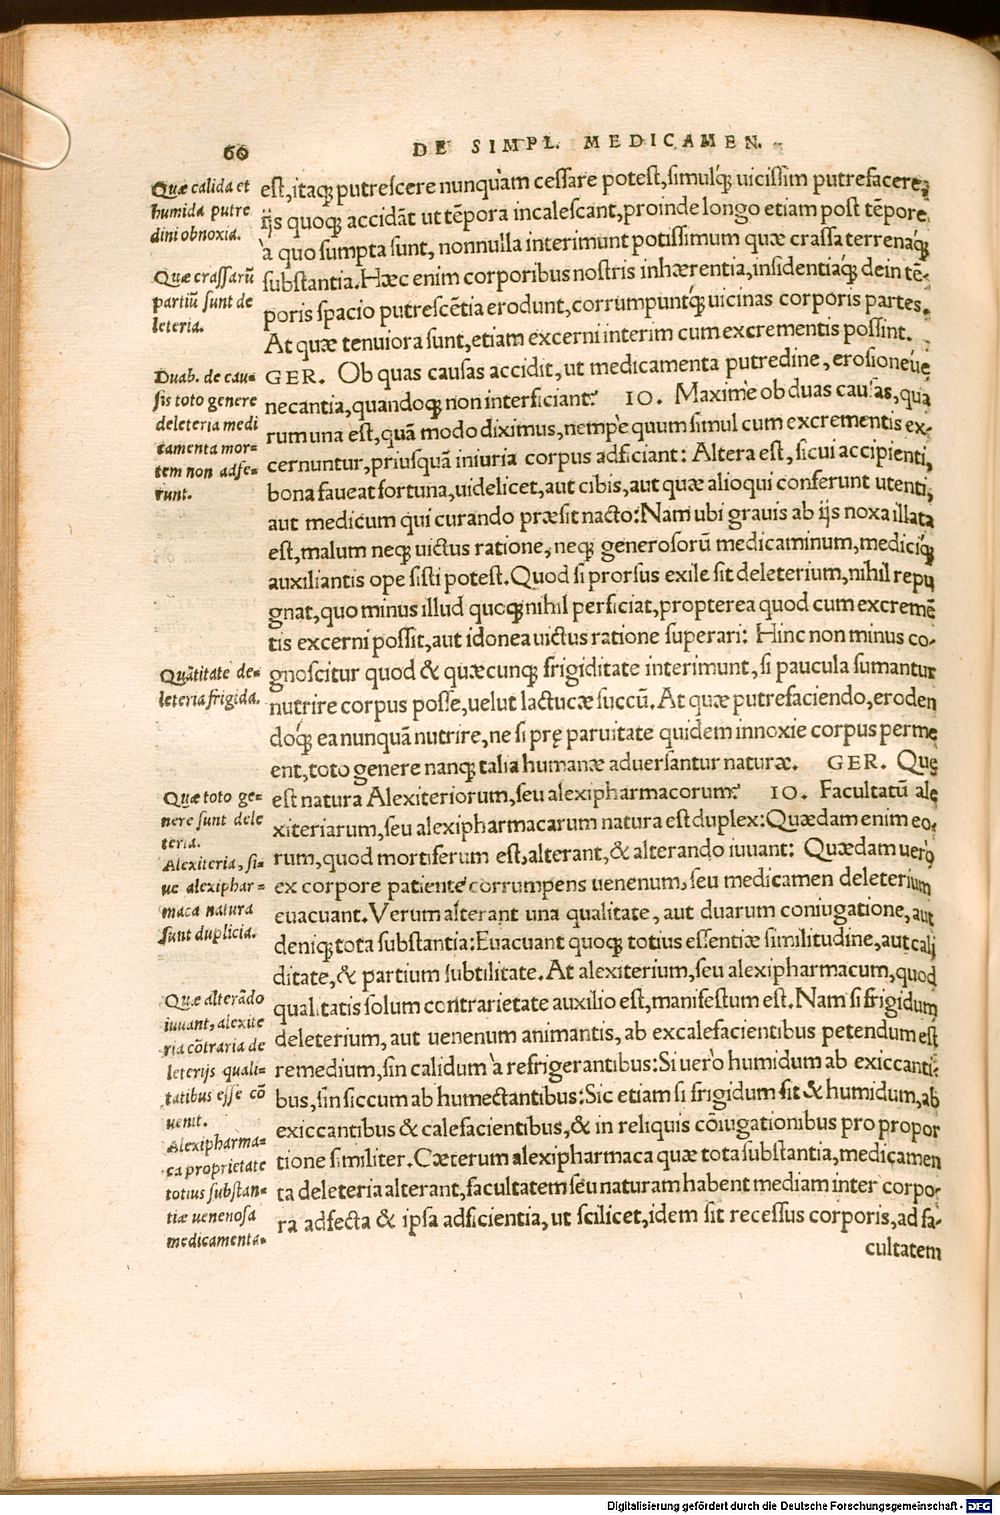 60
DE SIMPL. MEDICAMEN.
Quæ calida et
humida putre
dini obnoxia.
Quæ crassarũ
partiũ sunt de
leteria.
Duab. de cau=
sis toto genere
deleteria medi
camenta mor=
tem non adfe=
runt.
Quãtitate de=
leteria frigida.
Quæ toto ge=
nere sunt dele
teria.
Alexiteria, si=
ue alexiphar=
maca natura
sunt duplicia.
Quæ alterãdo
iuuant, alexite
ria cõtraria de
leterijs quali=
tatibus esse cõ
uenit.
Alexipharma=
ca proprietate
totius substan=
tiæ uenenosa
medicamenta.
est, itaq; putrescere nunquàm cessare potest, simulq́; uicissim putrefacere,
ijs quoq; accidãt ut tẽpora incalescant, proinde longo etiam post tẽpore,
à quo sumpta sunt, nonnulla interimunt potissimum quæ crassa terrenaq́;
substantia. Hæc enim corporibus nostris inhærentia, insidentiaq́; dein tẽ-
poris spacio putrescẽtia erodunt, corrumpuntq́; uicinas corporis partes.
At quæ tenuiora sunt, etiam excerni interim cum excrementis possint.
GER. Ob quas causas accidit, ut medicamenta putredine, erosioneúe
necantia, quandoq; non interficiant? IO. Maximè ob duas causas, qua
rum una est, quã modo diximus, nempè quum simul cum excrementis ex-
cernuntur, priusquã iniuria corpus adficiant: Altera est, si cui accipienti,
bona faueat fortuna, uidelicet, aut cibis, aut quæ alioqui conferunt utenti,
aut medicum qui curando præsit nacto: Nam ubi grauis ab ijs noxa illata
est, malum neq; uictus ratione, neq; generosorũ medicaminum, mediciq́;
auxiliantis ope sisti potest. Quod si prorsus exile sit deleterium, nihil repu
gnat, quo minus illud quoq; nihil perficiat, propterea quod cum excremẽ
tis excerni possit, aut idonea uictus ratione superari: Hinc non minus co-
gnoscitur quod & quæcunq; frigiditate interimunt, si paucula sumantur
nutrire corpus posse, uelut lactucæ succũ. At quæ putrefaciendo, eroden
doq́; ea nunquã nutrire, ne si prę paruitate quidem innoxie corpus perme
ent, toto genere nanq; talia humanæ aduersantur naturæ. GER. Quę
est natura Alexiteriorum, seu alexipharmacorum? IO. Facultatũ ale
xiteriarum, seu alexipharmacarum natura est duplex: Quædam enim eo-
rum, quod mortiferum est, alterant, & alterando iuuant: Quædam uerò
ex corpore patiente corrumpens uenenum, seu medicamen deleterium
euacuant. Verum alterant una qualitate, aut duarum coniugatione, aut
deniq; tota substantia: Euacuant quoq; totius essentiæ similitudine, aut cali
ditate, & partium subtilitate. At alexiterium, seu alexipharmacum, quod
qualitatis solum contrarietate auxilio est, manifestum est. Nam si frigidum
deleterium, aut uenenum animantis, ab excalefacientibus petendum est
remedium, sin calidum à refrigerantibus: Si uerò humidum ab exiccanti-
bus, sin siccum ab humectantibus: Sic etiam si frigidum sit & humidum, ab
exiccantibus & calefacientibus, & in reliquis cõiugationibus pro propor
tione similiter. Cæterum alexipharmaca quæ tota substantia, medicamen
ta deleteria alterant, facultatem seu naturam habent mediam inter corpo-
ra adfecta & ipsa adficientia, ut scilicet, idem sit recessus corporis, ad fa-
cultatem
Digitalisierung gefördert durch die Deutsche Forschungsgemeinschaft - DFG